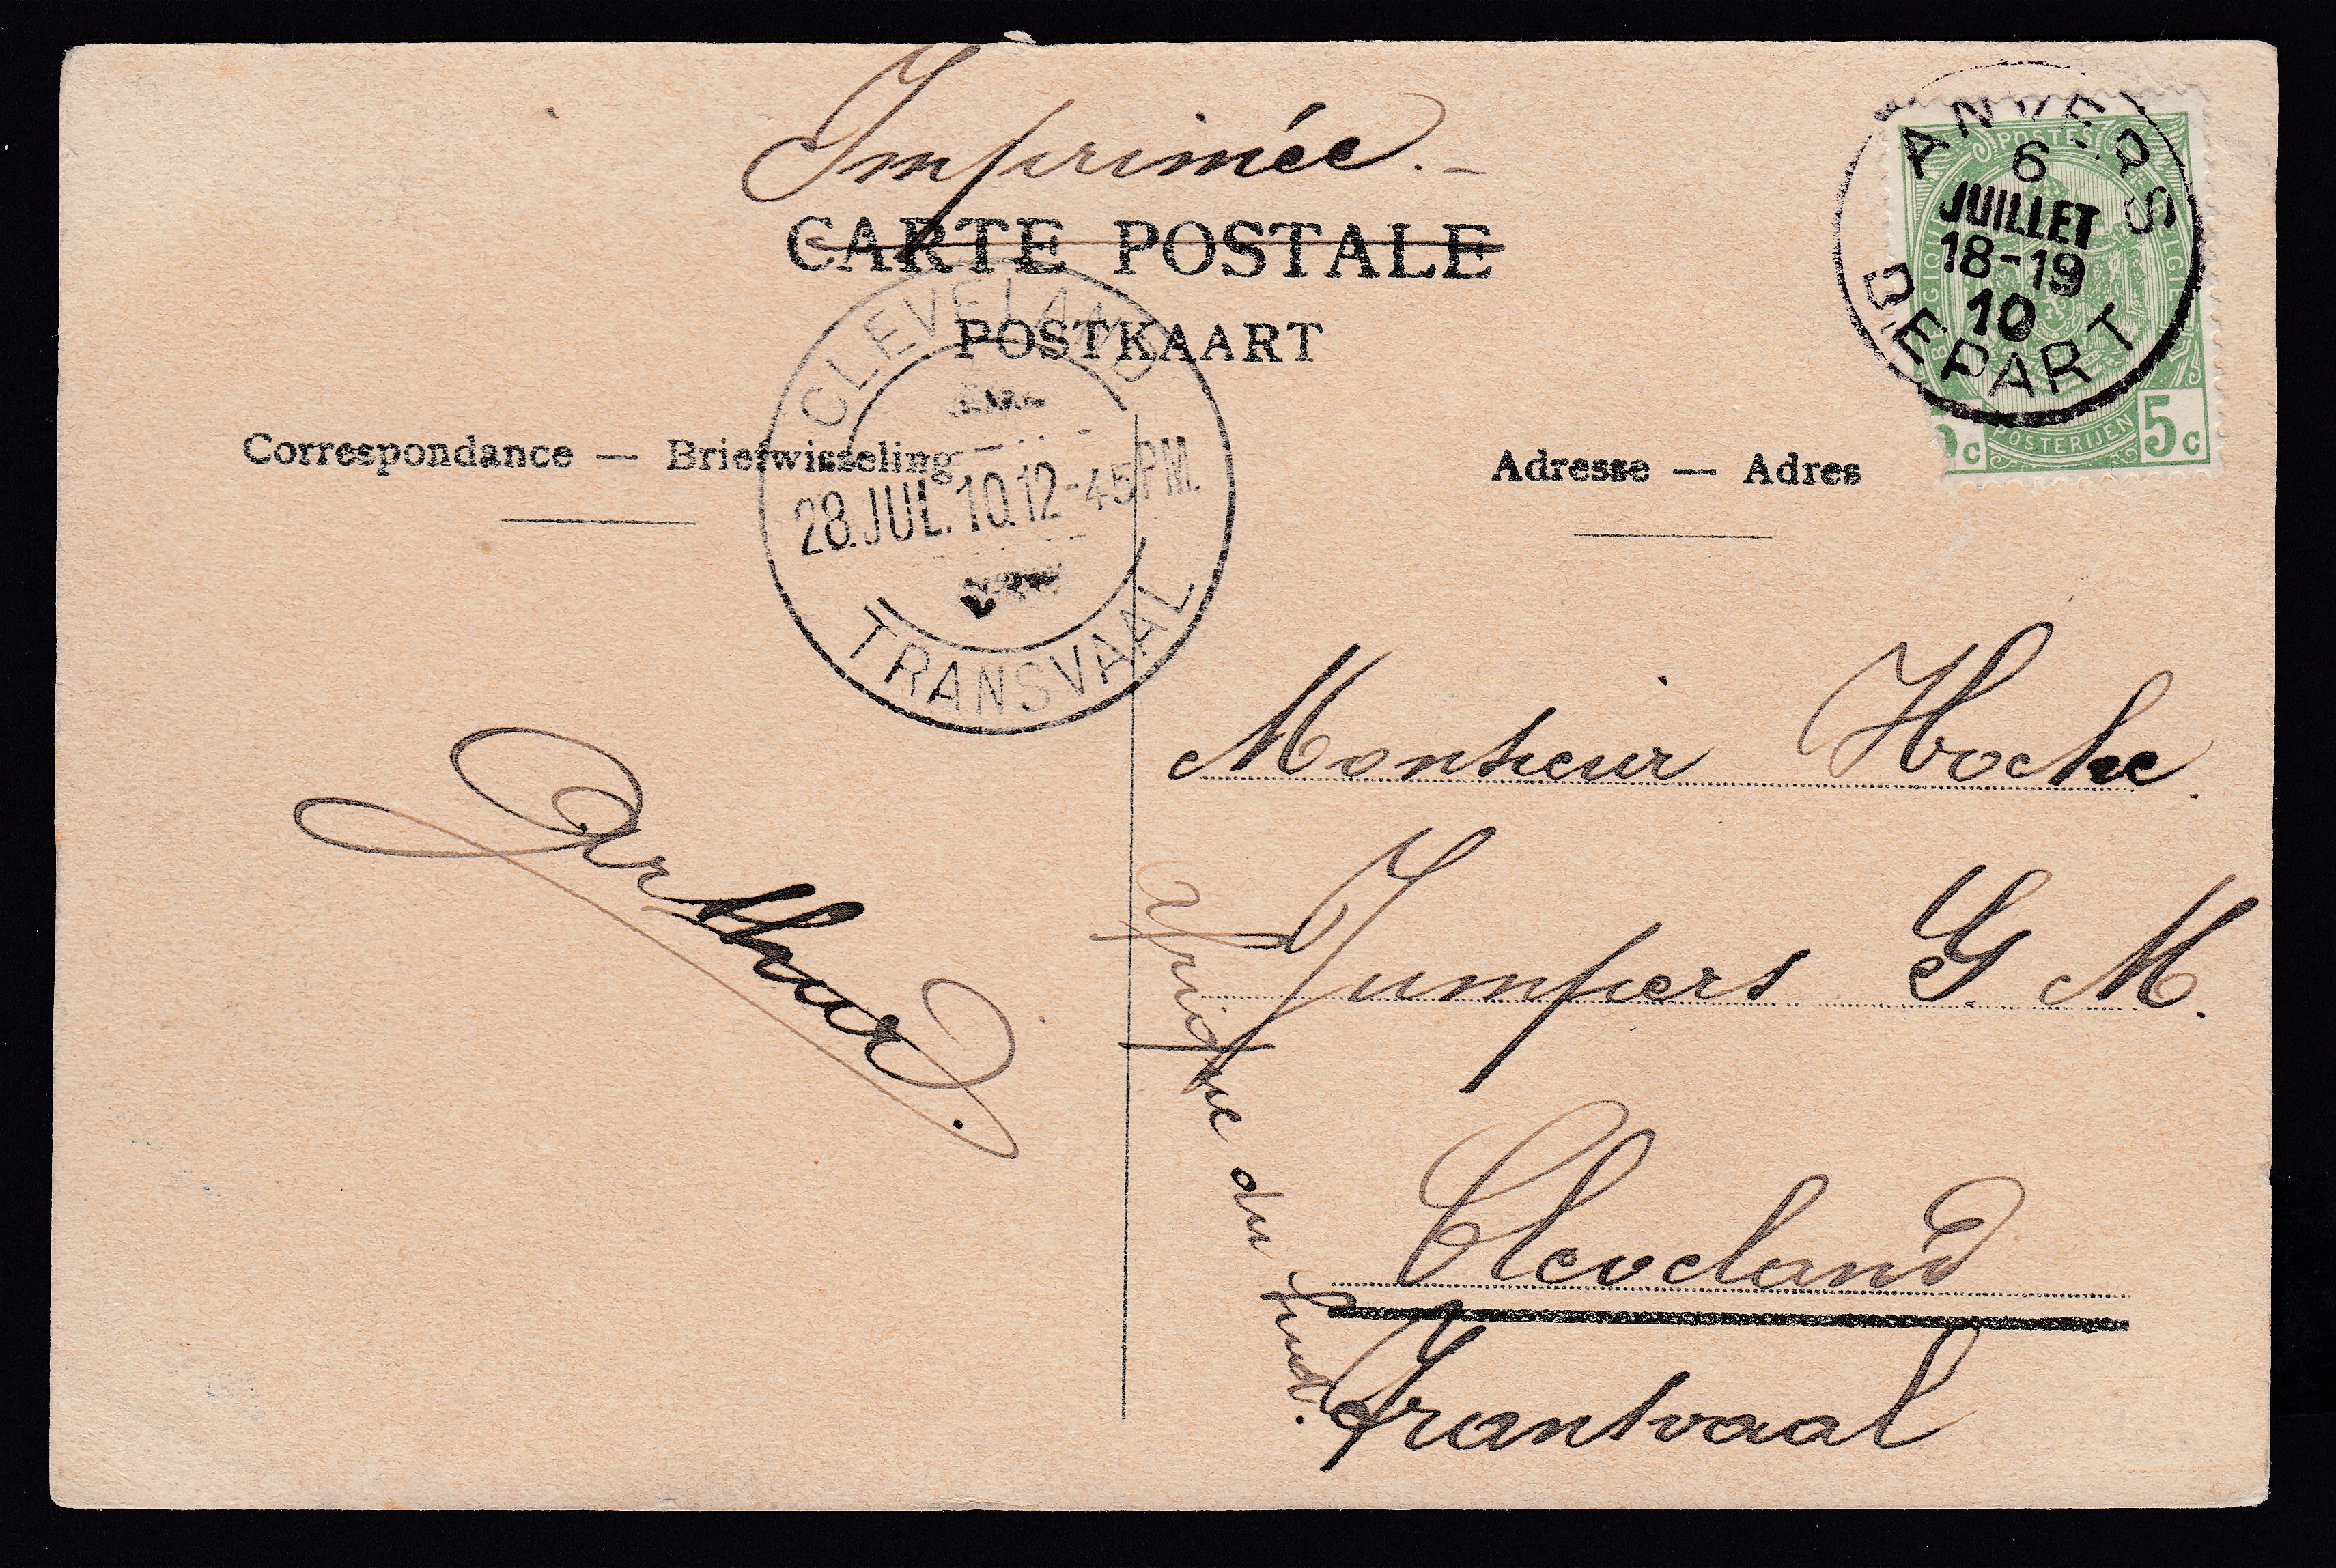 Imprimée.-
CARTE POSTALE
POSTKAART
ANVERS
6
JUILLET
18-19
10
DEPART
POSTES
BELGIQUE
BELGIË
POSTERIJEN
5c
5c
CLEVELAND
28.JUL.10.12-45PM.
TRANSVAAL
Correspondance — Briefwisseling
Adresse — Adres
Arthur.
Monsieur Hoche.
Jumpers G. M.
Cleveland
Transvaal
Afrique du Sud.